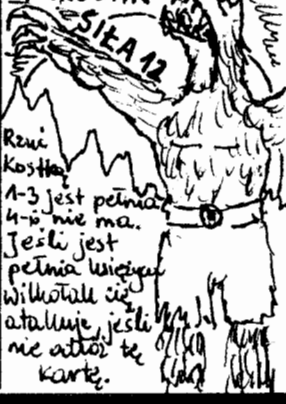 SIŁA 12
Rzuć
kostką
1-3 jest pełnia
4-6 nie ma.
Jeśli jest
pełnia księżyca
wilkołak cię
atakuje, jeśli
nie odłóż tę
kartę.